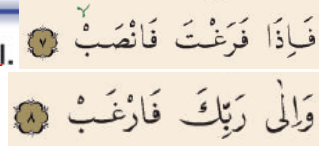 فَاِذَا فَرَغْتَ فَانْصَبْ ۙ ﴿۷﴾
وَاِلٰى رَبِّكَ فَارْغَبْ ﴿۸﴾